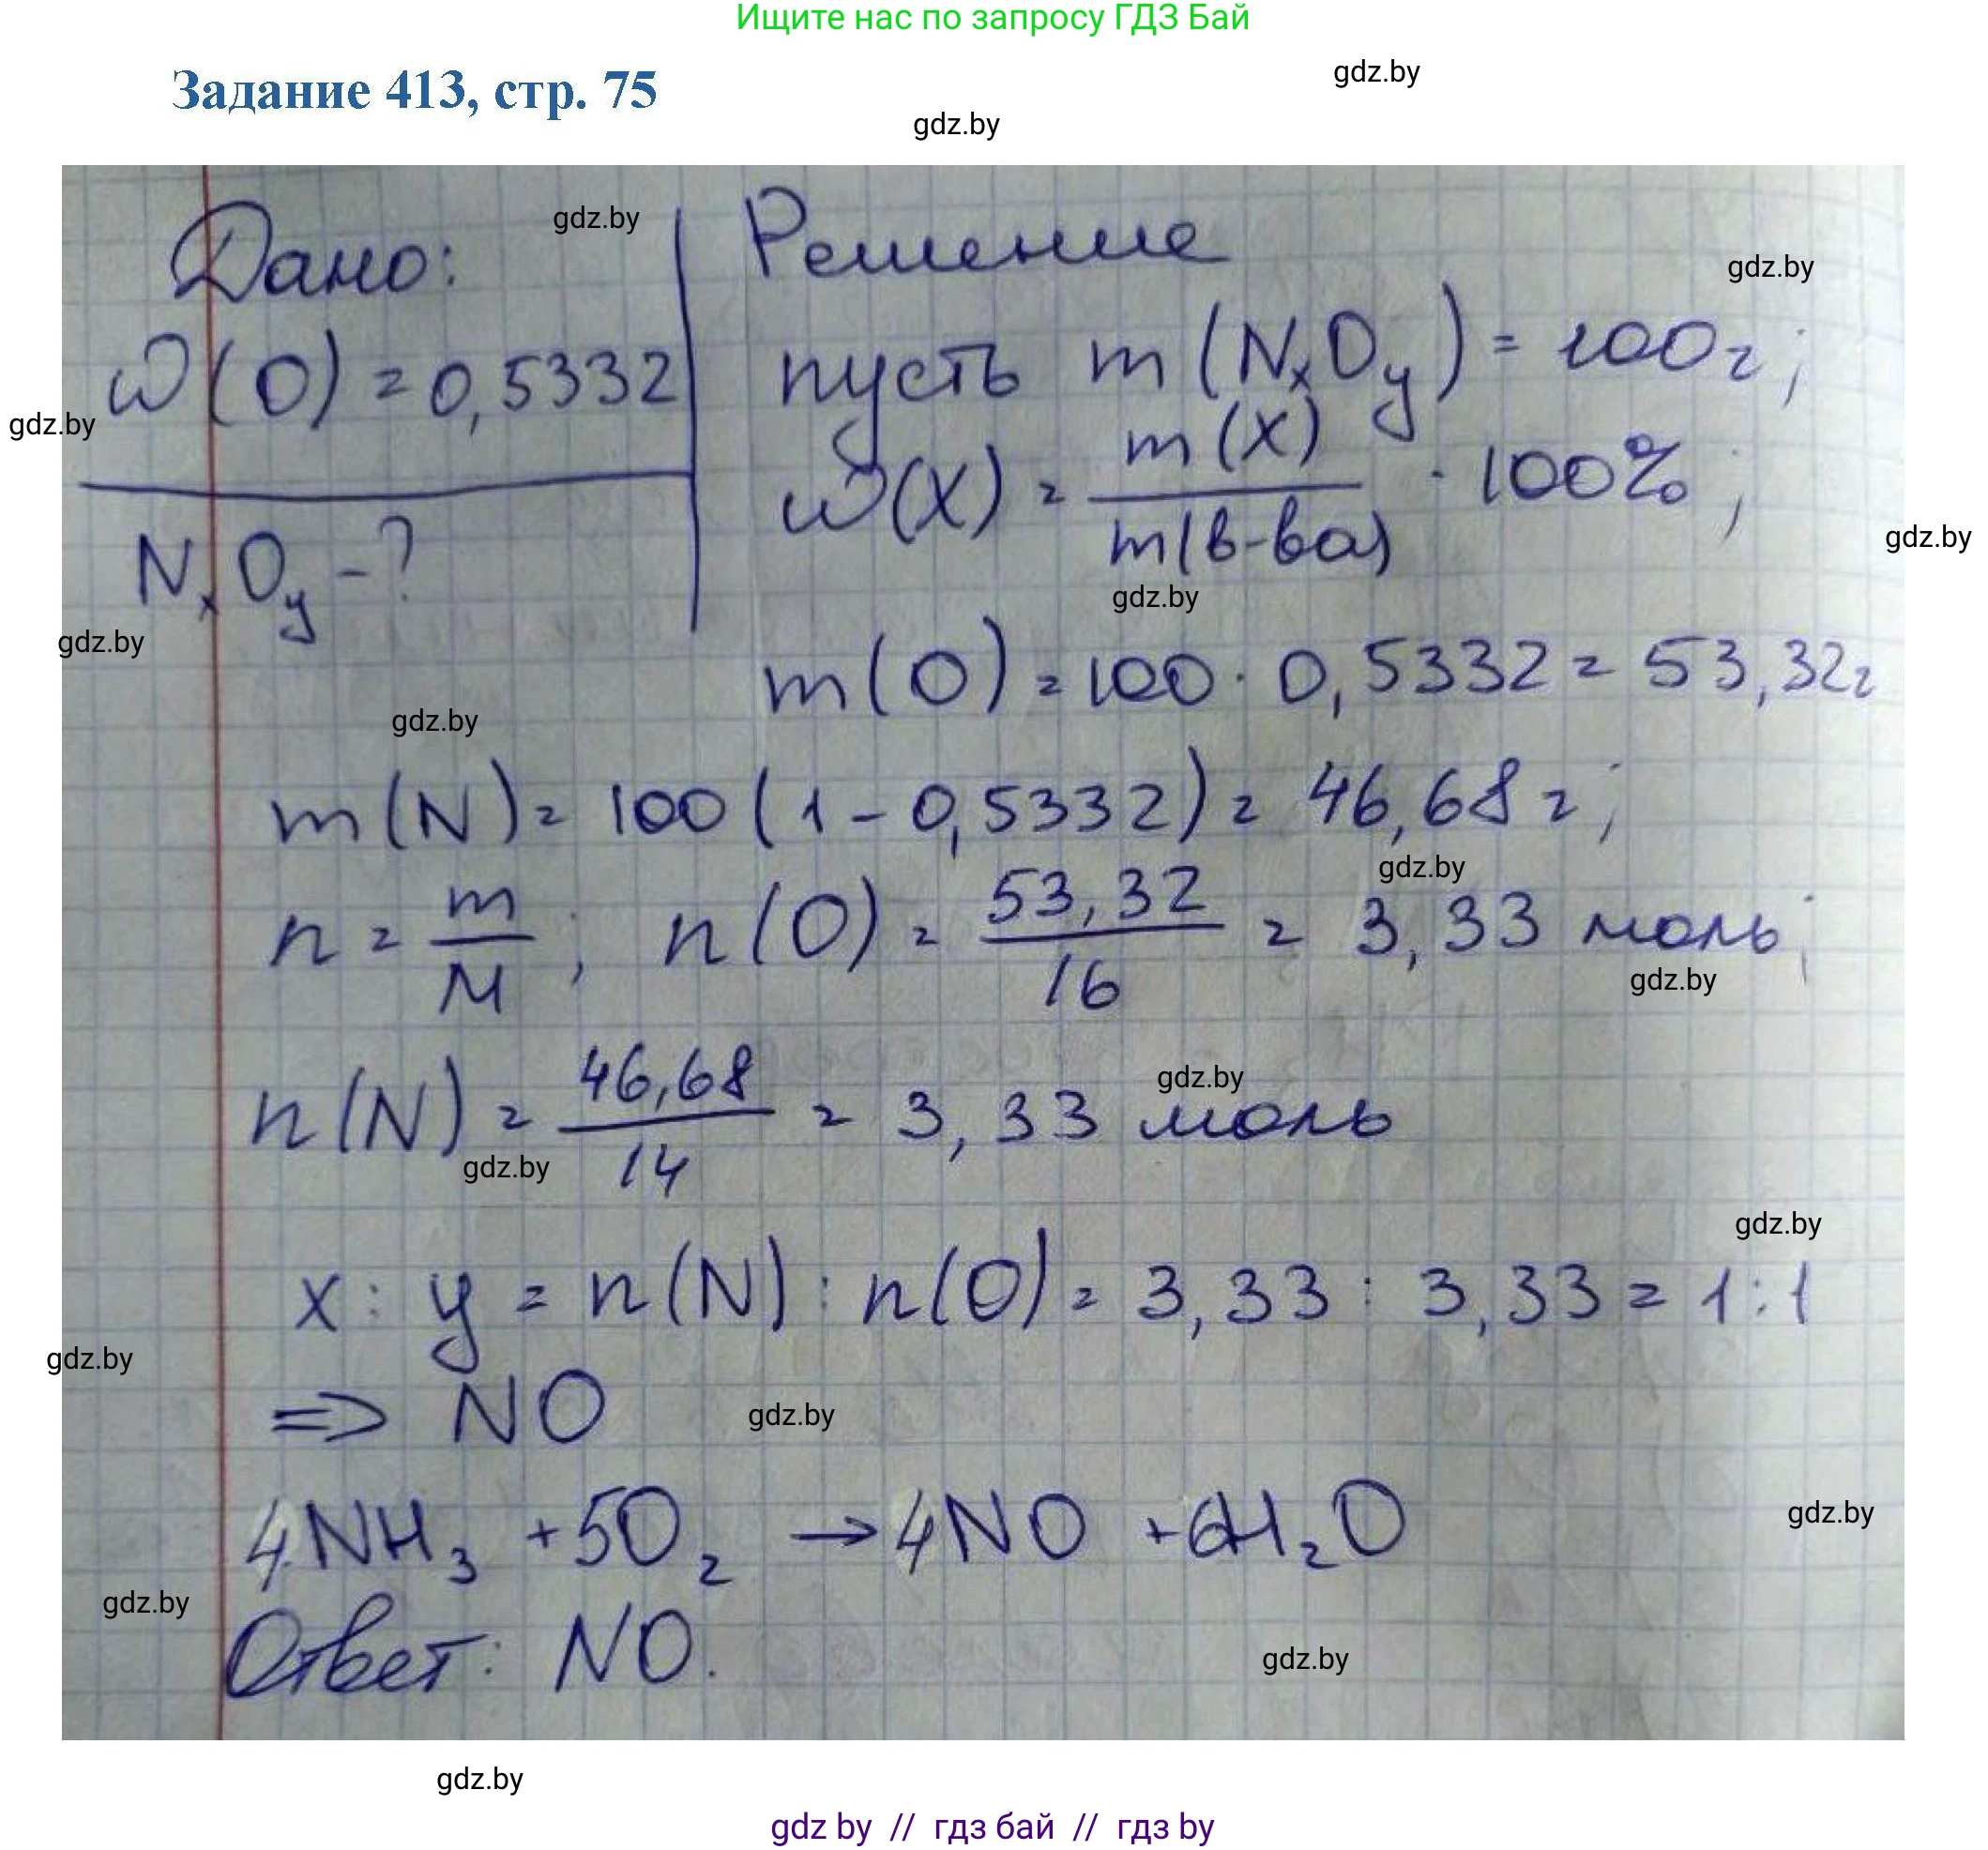 Ищите нас по запросу ГДЗ Бай
Задание 413, стр. 75
gdz.by
gdz.by
Дано:
gdz.by
Решение
gdz.by
ω(O) = 0,5332
gdz.by
пусть m(NₓOᵧ) = 100г;
ω(X) = m(X) / m(в-ва) · 100%;
gdz.by
NₓOᵧ - ?
gdz.by
gdz.by
m(O) = 100 · 0,5332 = 53,32г
gdz.by
m(N) = 100(1 - 0,5332) = 46,68г;
gdz.by
n = m / M; n(O) = 53,32 / 16 = 3,33 моль;
gdz.by
gdz.by
n(N) = 46,68 / 14 = 3,33 моль
gdz.by
gdz.by
x : y = n(N) : n(O) = 3,33 : 3,33 = 1:1
gdz.by
=> NO
gdz.by
4NH₃ + 5O₂ → 4NO + 6H₂O
gdz.by
gdz.by
Ответ: NO.
gdz.by
gdz.by
gdz by // гдз бай // гдз by